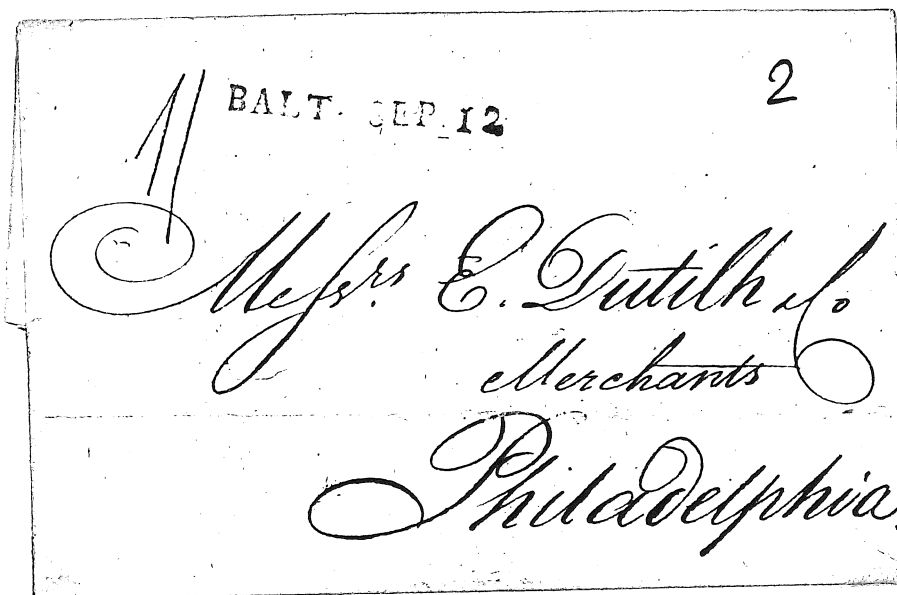 2
BALT. SEP. 12
Messrs. E. Dutilh & Co
Merchants
Philadelphia.